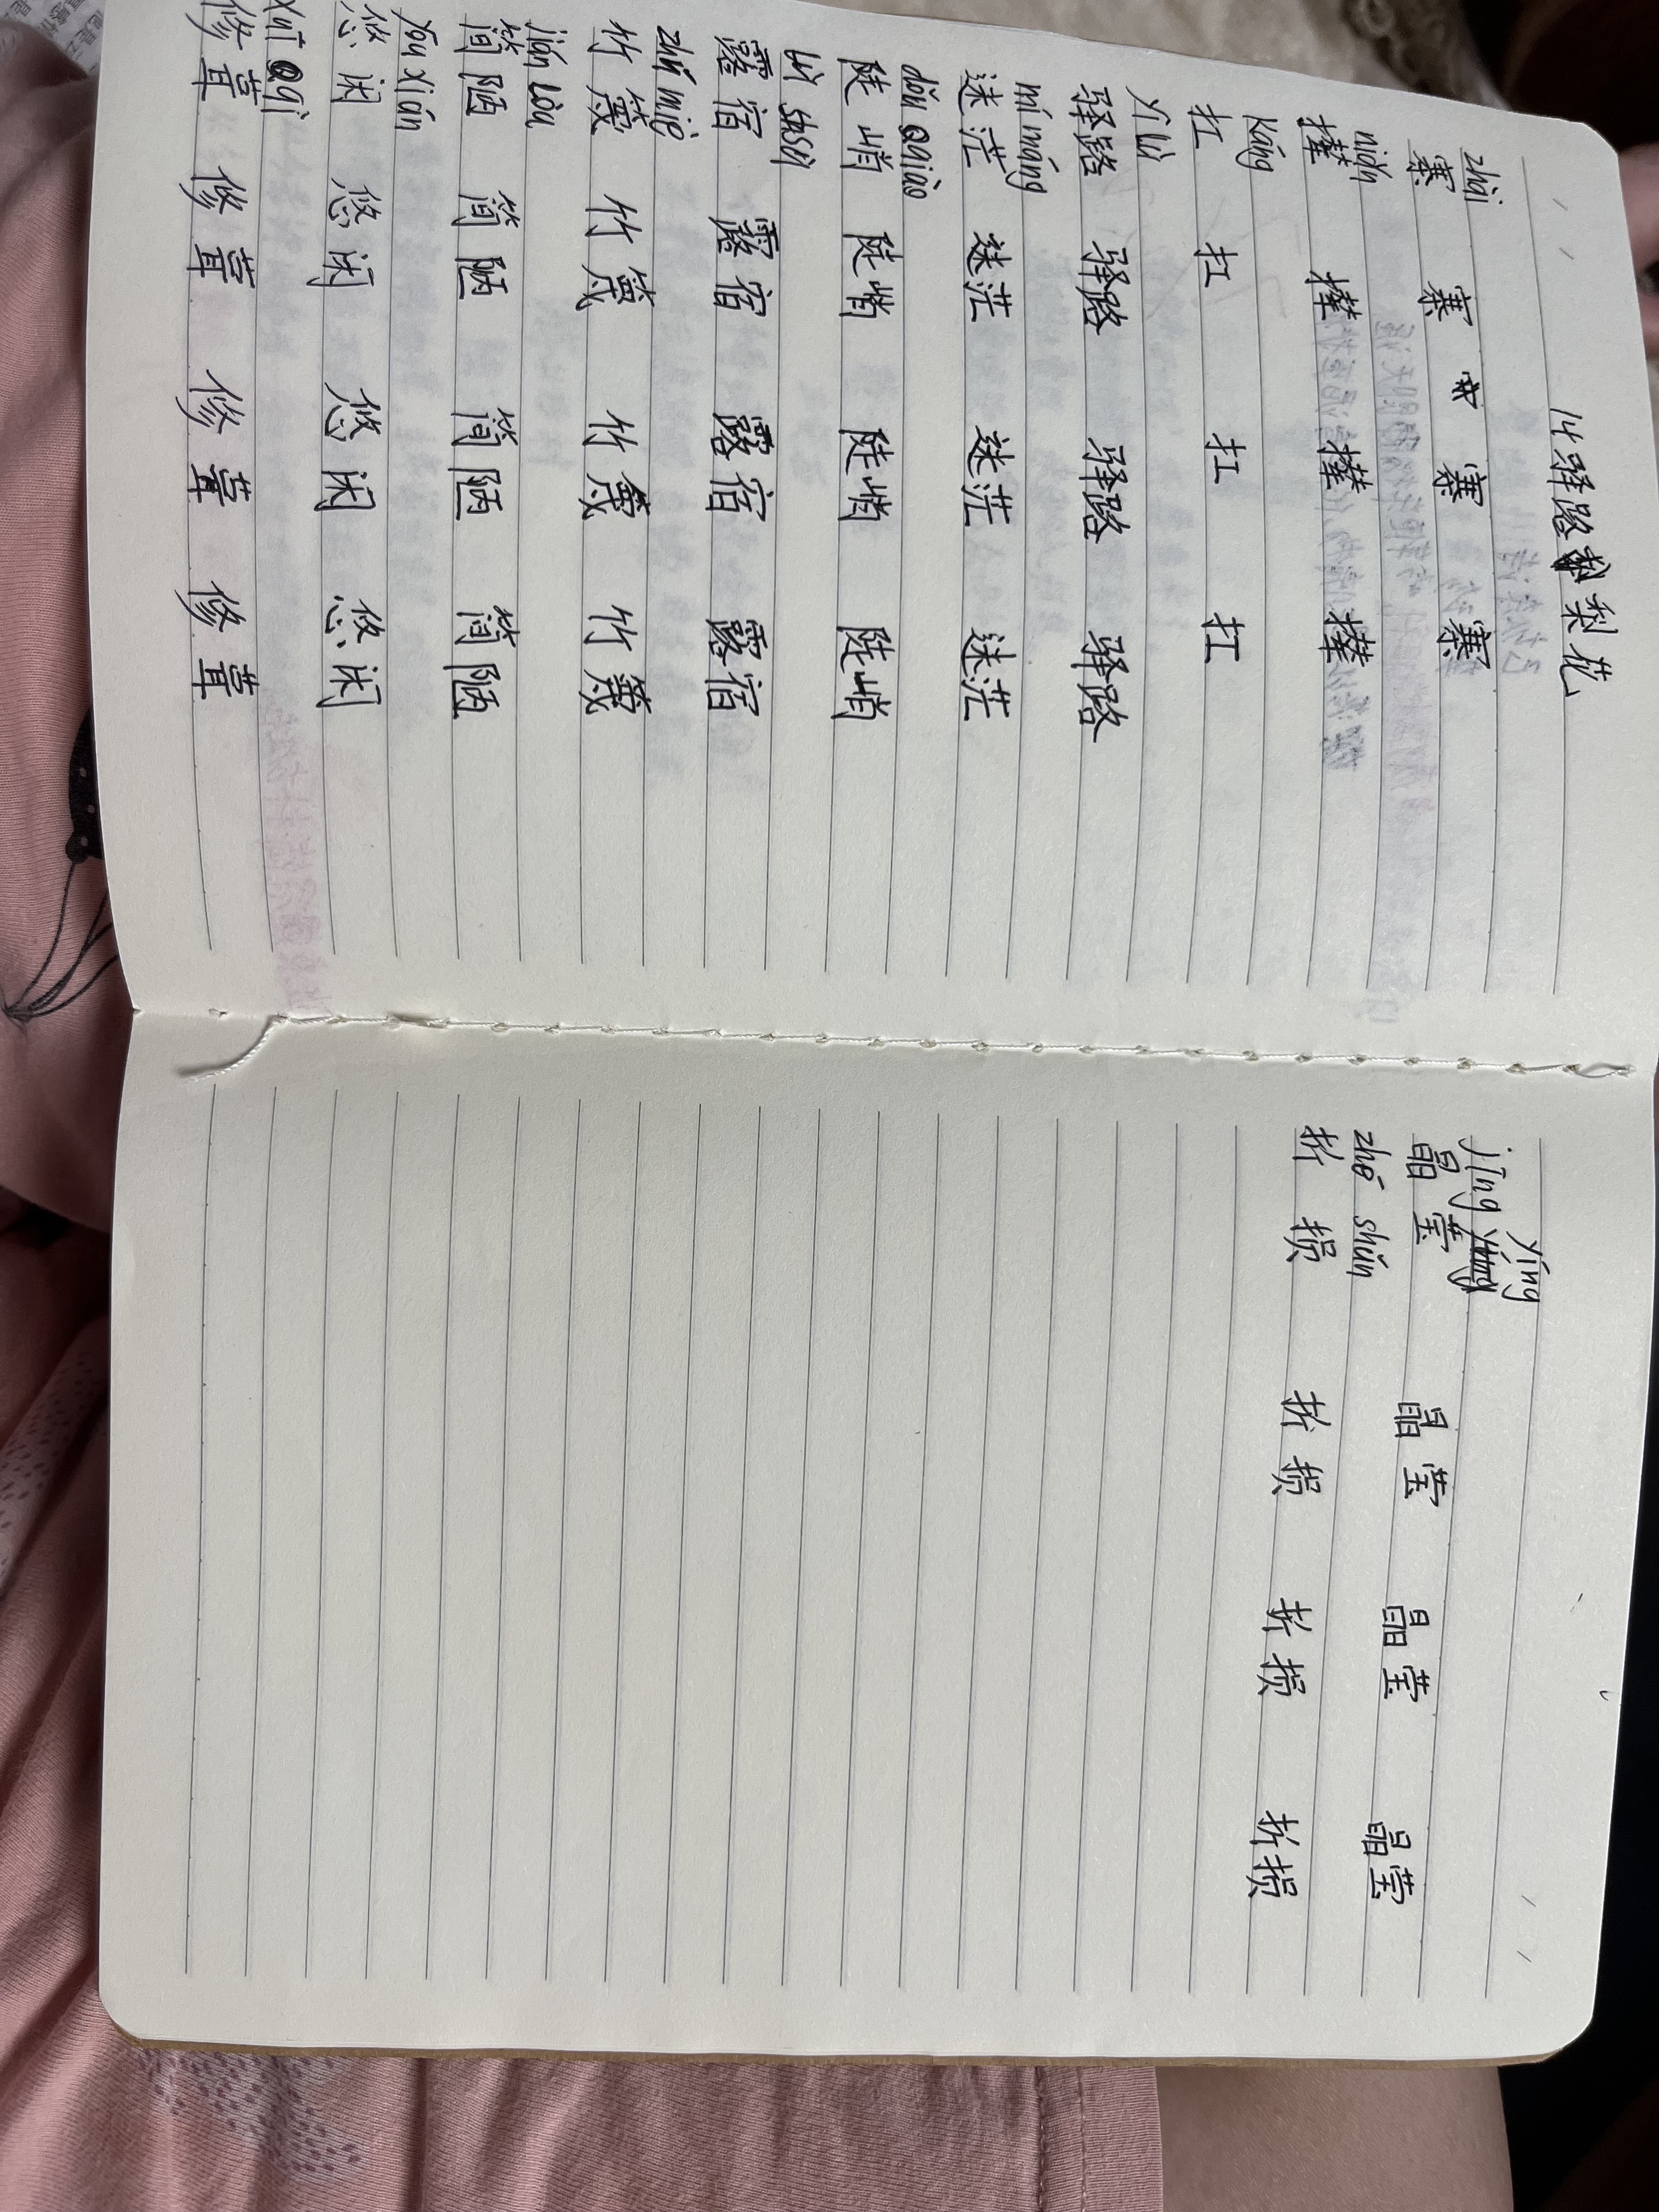 14 驿路梨花
zhài
寨 寨 寨 寨
niǎn
撵 撵 撵 撵
káng
扛 扛 扛 扛
Yì lù
驿路 驿路 驿路 驿路
mí máng
迷茫 迷茫 迷茫 迷茫
dǒu qiào
陡峭 陡峭 陡峭 陡峭
lù sù
露宿 露宿 露宿 露宿
zhú miè
竹篾 竹篾 竹篾 竹篾
jiǎn lòu
简陋 简陋 简陋 简陋
You xián
悠闲 悠闲 悠闲 悠闲
xuī qì
修葺 修葺 修葺 修葺
yíng
jīng
晶莹 晶莹 晶莹 晶莹
zhé shǔn
折损 折损 折损 折损